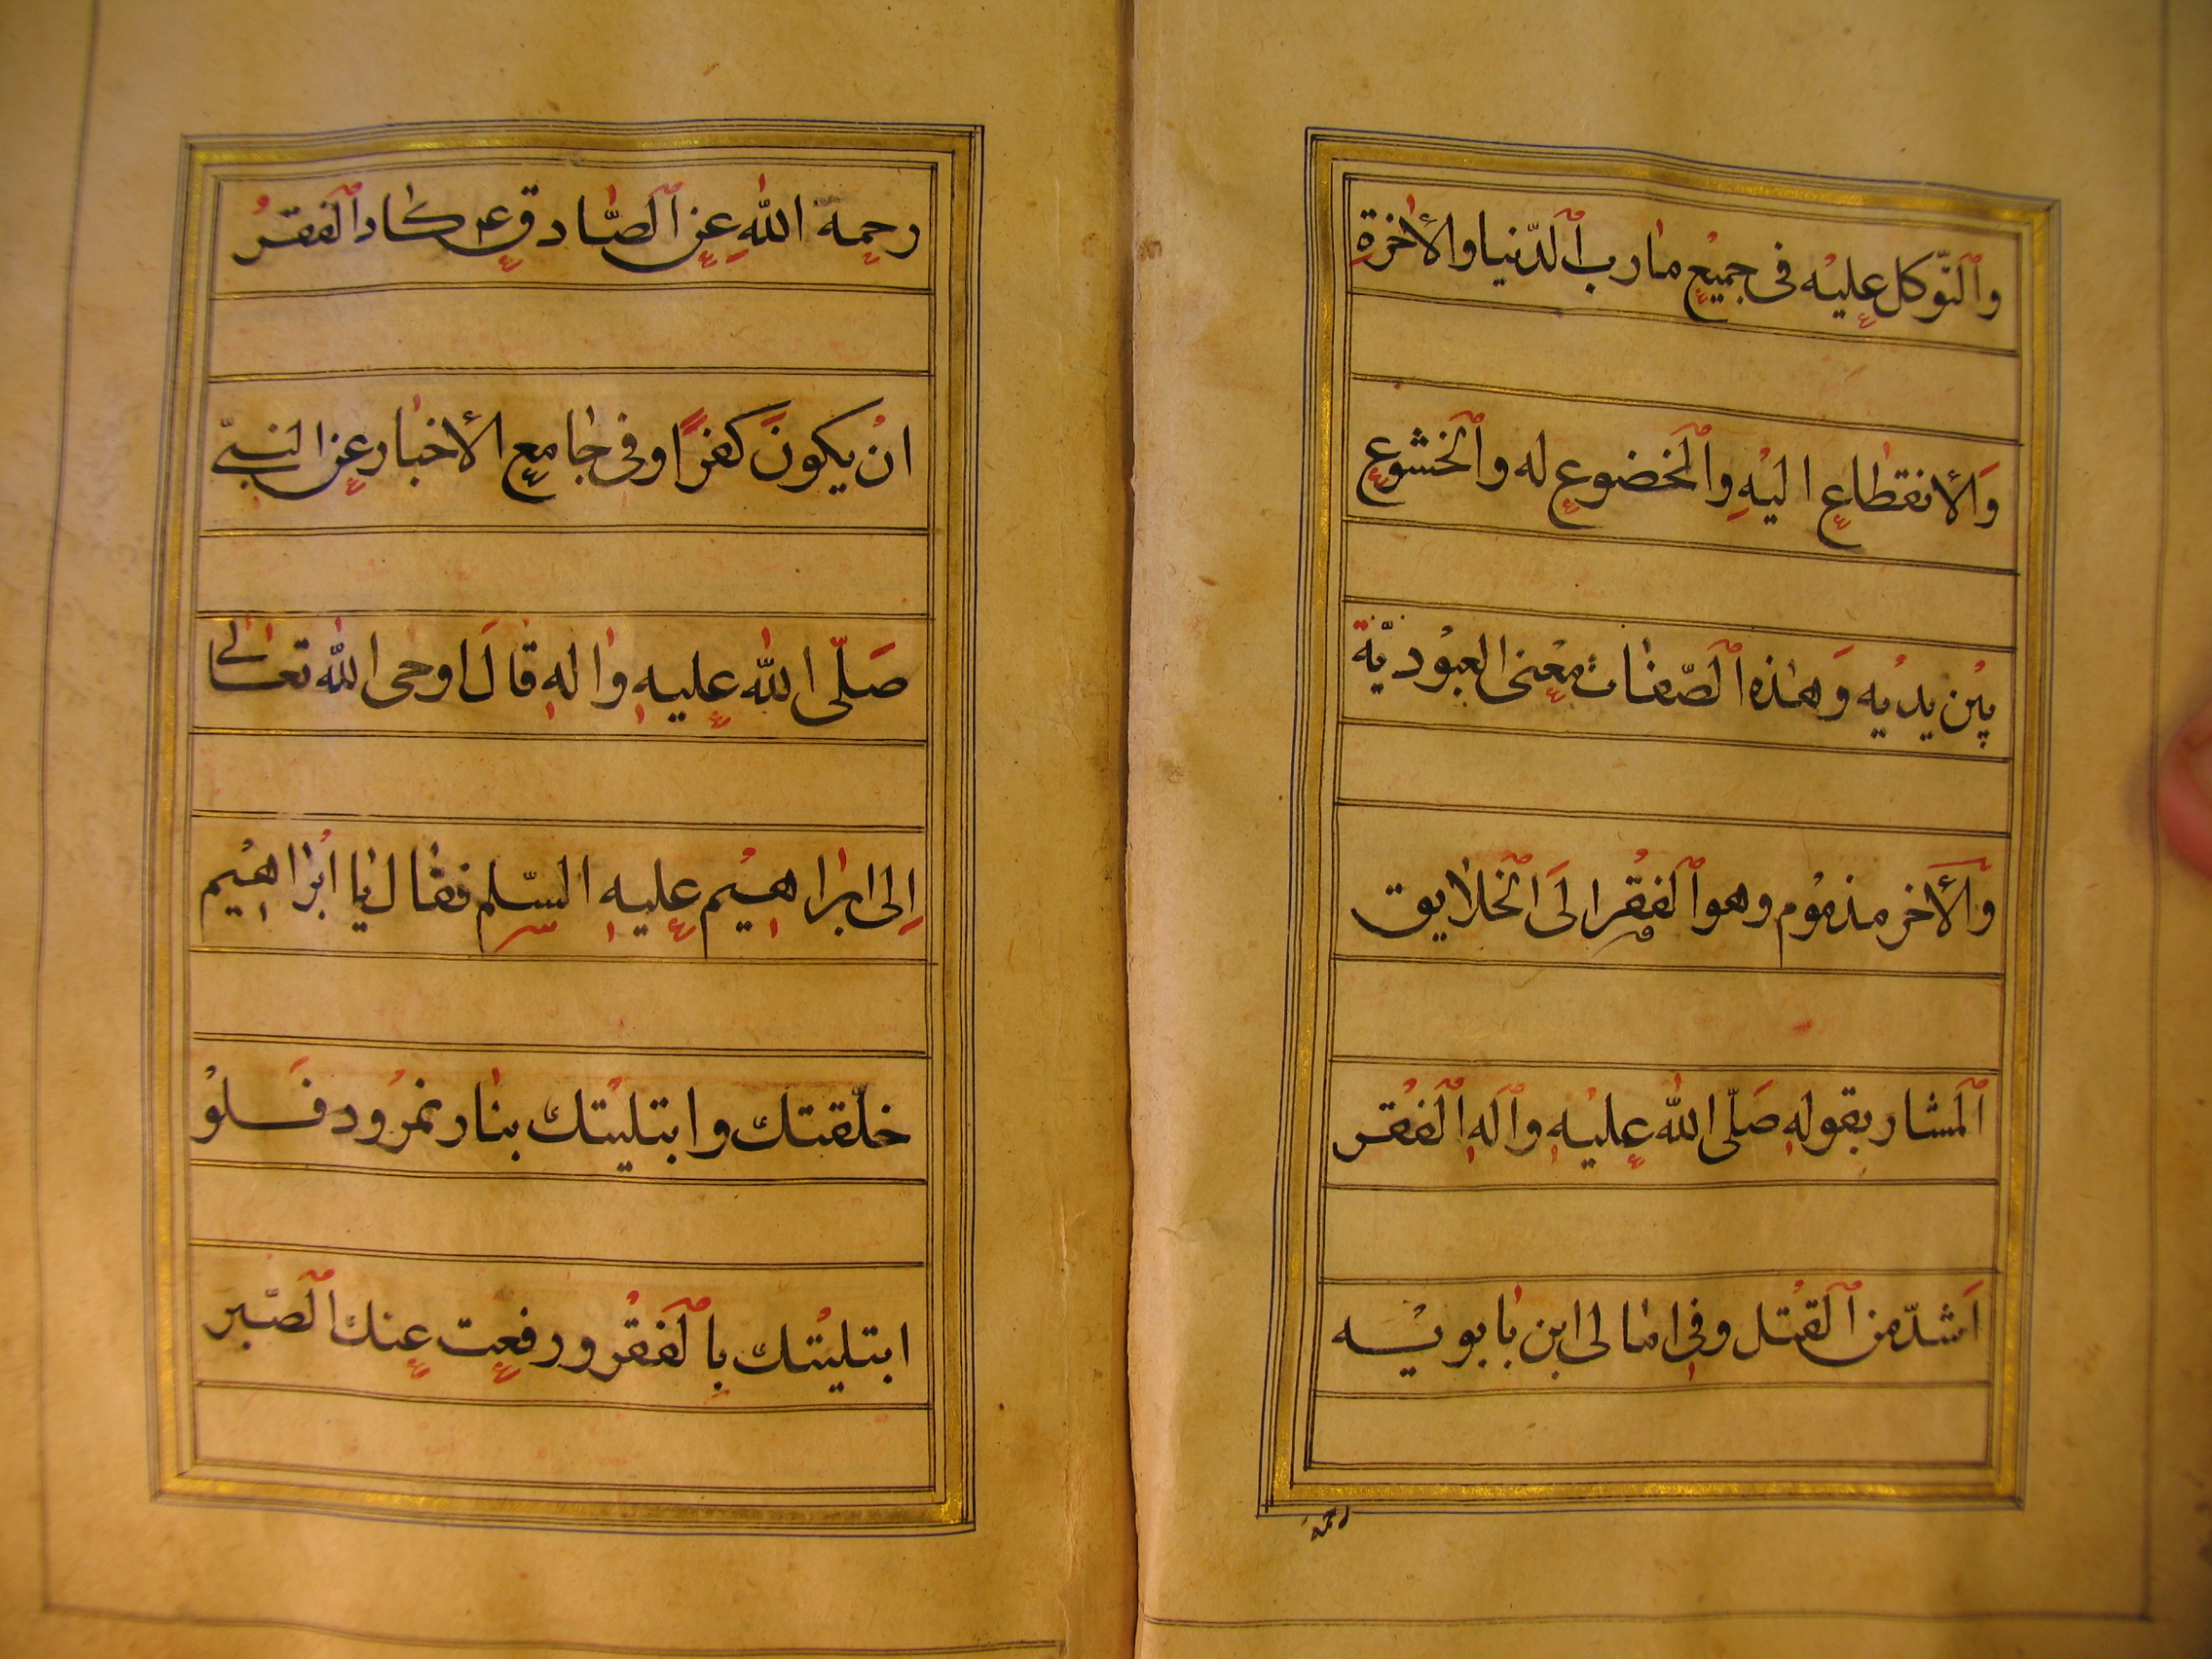 والتّوكل عليه فى جميع مارب الدّنيا والأخرة
والأنقطاع اليه والخضوع له والخشوع
بين يديه وهذه الصّفات معنى العبوديّة
والأخر مذموم وهو الفقر الى الخلايق
المشار بقوله صلّى الله عليه واله الفقر
اشدّ من القتل وفى امالى ابن بابويه
رحمة
رحمة الله عن الصّادق ع كاد الفقر
ان يكون كفرًا وفى جامع الأخبار عن النبىّ
صلّى الله عليه واله قال اوحى الله تعالى
الى ابراهيم عليه السّلم فقال يا ابراهيم
خلّقتك وابتليتك بنار نمرود فلو
ابتليتك بالفقر ورفعت عنك الصّبر